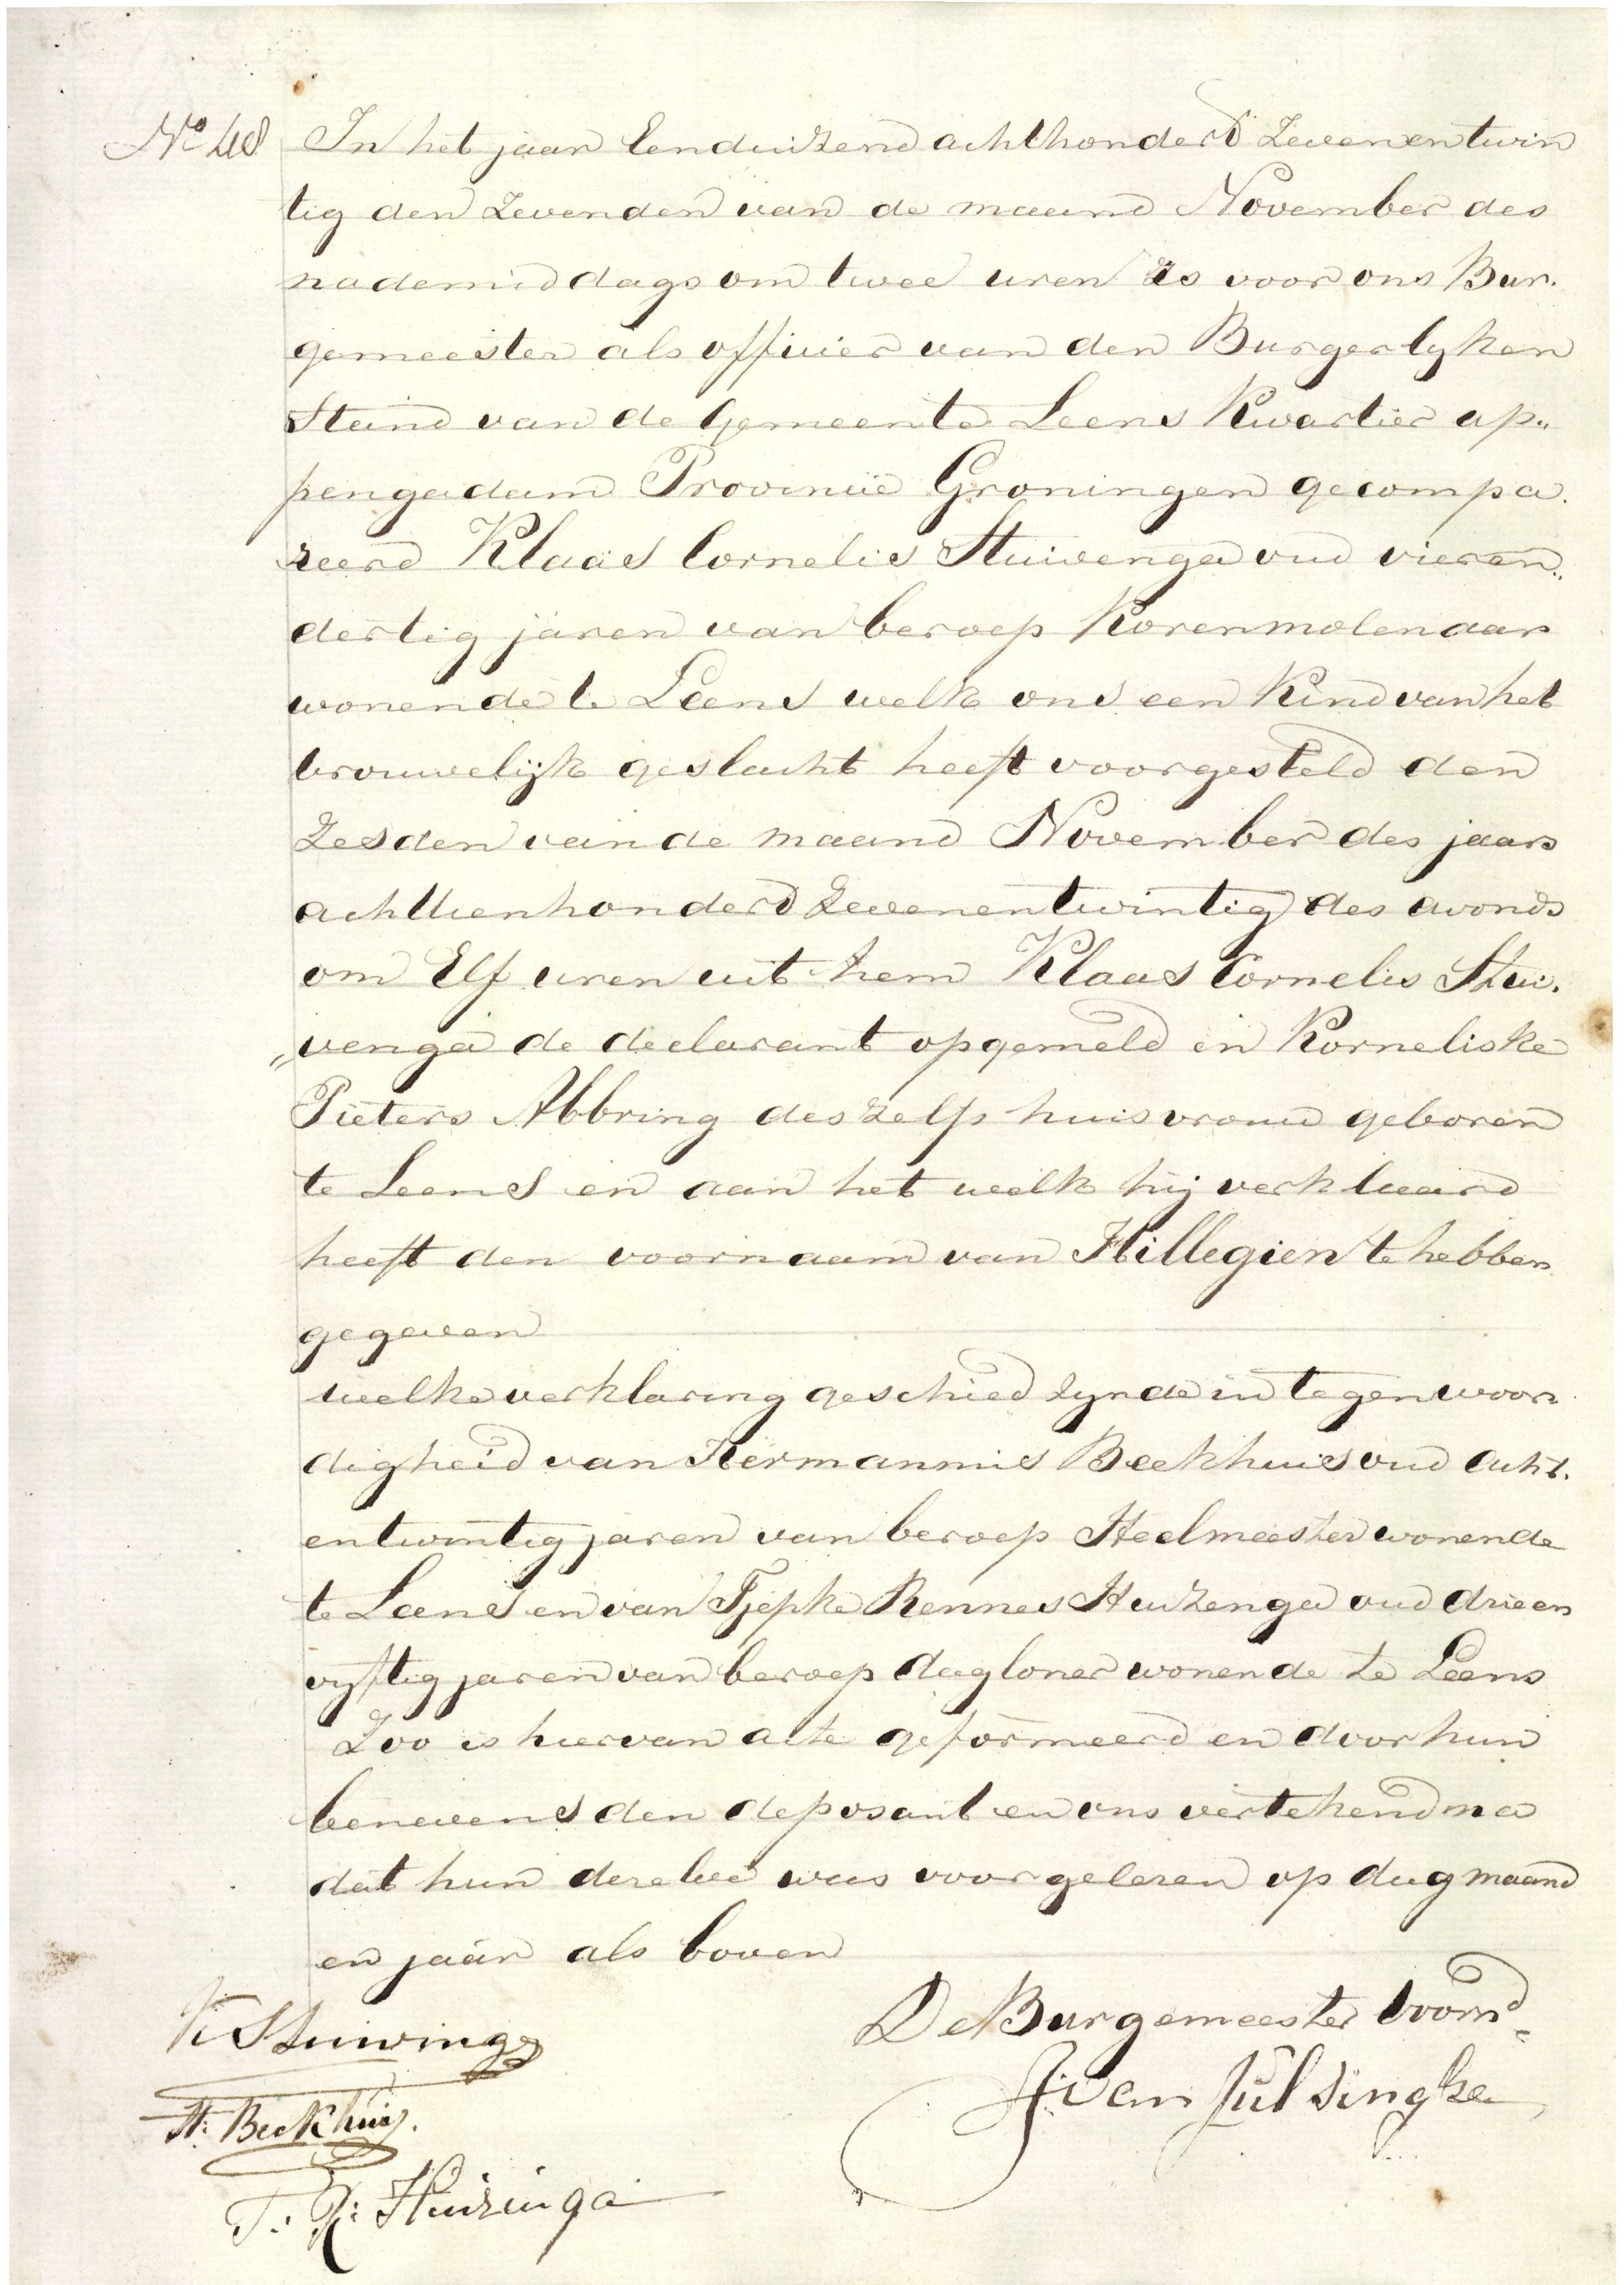 No 48 In het jaar Eenduizend achthonderd Zevenentwin
tig den Zevenden van de maand November des
nademiddags om twee uren is voor ons Bur.
gemeester als officier van den Burgerlyken
Stand van de Gemeente Leens Kwartier ap„
pengadam Provincie Groningen gecompa.
reerd Klaas Cornelis Stuivenga oud vieren„
dertig jaren van beroep Korenmolenaar
wonende te Leens welk ons een Kind van het
vrouwelijk geslacht heeft voorgesteld den
Zesden van de maand November des jaars
achttienhonderd Zevenentwintig des avonds
om Elf uren uit hem Klaas Cornelis Stui.
„venga de declarant opgemeld en Korneliske
Pieters Abbring deszelfs huisvrouw geboren
te Leens en aan het welk hij verklaard
heeft den voornaam van Hillegien te hebben
gegeven
welke verklaring geschied zynde in tegenwoor
digheid van Hermannus Beekhuis oud Acht.
entwintig jaren van beroep Heelmeester wonende
te Leens en van Tjepke Rennes Huizenga oud drieen
vyftig jaren van beroep dagloner wonende te Leens
Zoo is hiervan acte geformeerd en door hun
benevens den deposant en ons vertekend na
dat hun dezelve was voorgelezen op dag maand
en jaar als boven
De Burgemeester voornd
K Stuivinga
J van Julsingha
H: Beekhuis.
T: R: Huizinga